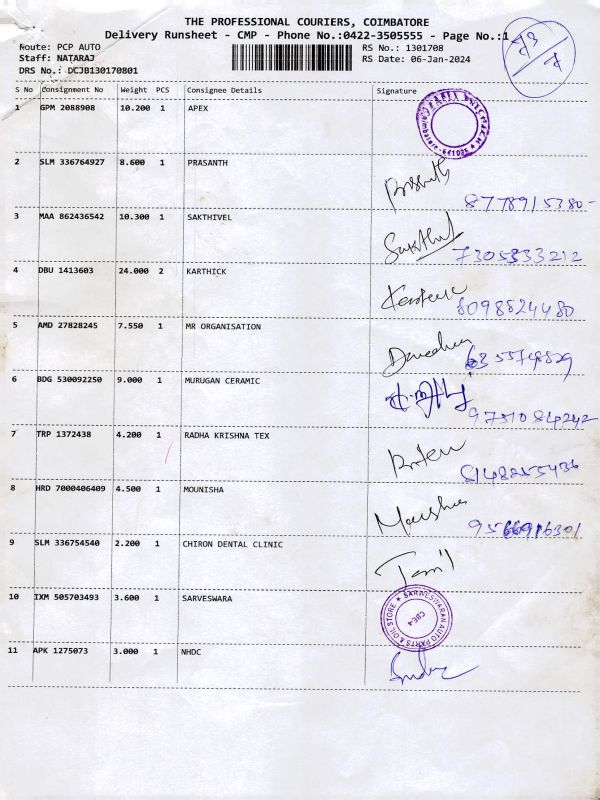 THE PROFESSIONAL COURIERS, COIMBATORE
Delivery Runsheet - CMP - Phone No.:0422-3505555 - Page No.:1
Route: PCP AUTO RS No.: 1301708
Staff: NATARAJ RS Date: 06-Jan-2024
DRS No.: DCJB130170801
S No Consignment No Weight PCS Consignee Details Signature
1 GPM 2088908 10.200 1 APEX
2 SLM 336764927 8.600 1 PRASANTH
8778915380-
3 MAA 862436542 10.300 1 SAKTHIVEL
Sakthivel 7305333212
4 DBU 1413603 24.000 2 KARTHICK
8098824480
5 AMD 27828245 7.550 1 MR ORGANISATION
6 BDG 530092250 9.000 1 MURUGAN CERAMIC
9751084242
7 TRP 1372438 4.200 1 RADHA KRISHNA TEX
8148255436
8 HRD 7000406409 4.500 1 MOUNISHA
9 SLM 336754540 2.200 1 CHIRON DENTAL CLINIC
Tamil
10 IXM 505703493 3.600 1 SARVESWARA
SARVESWARAN AUTO PARTS & OIL STORE
CBE-4
11 APK 1275073 3.000 1 NHDC